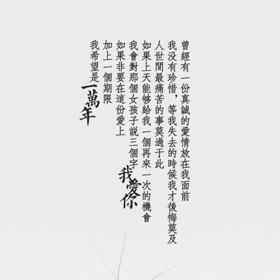 曾經有一份真誠的愛情放在我面前
我没有珍惜，等我失去的時候我才後悔莫及
人世間最痛苦的事莫過于此
如果上天能够給我一個再來一次的機會
我會對那個女孩子説三個字
我愛你
如果非要在這份愛上
加上一個期限
我希望是
一萬年